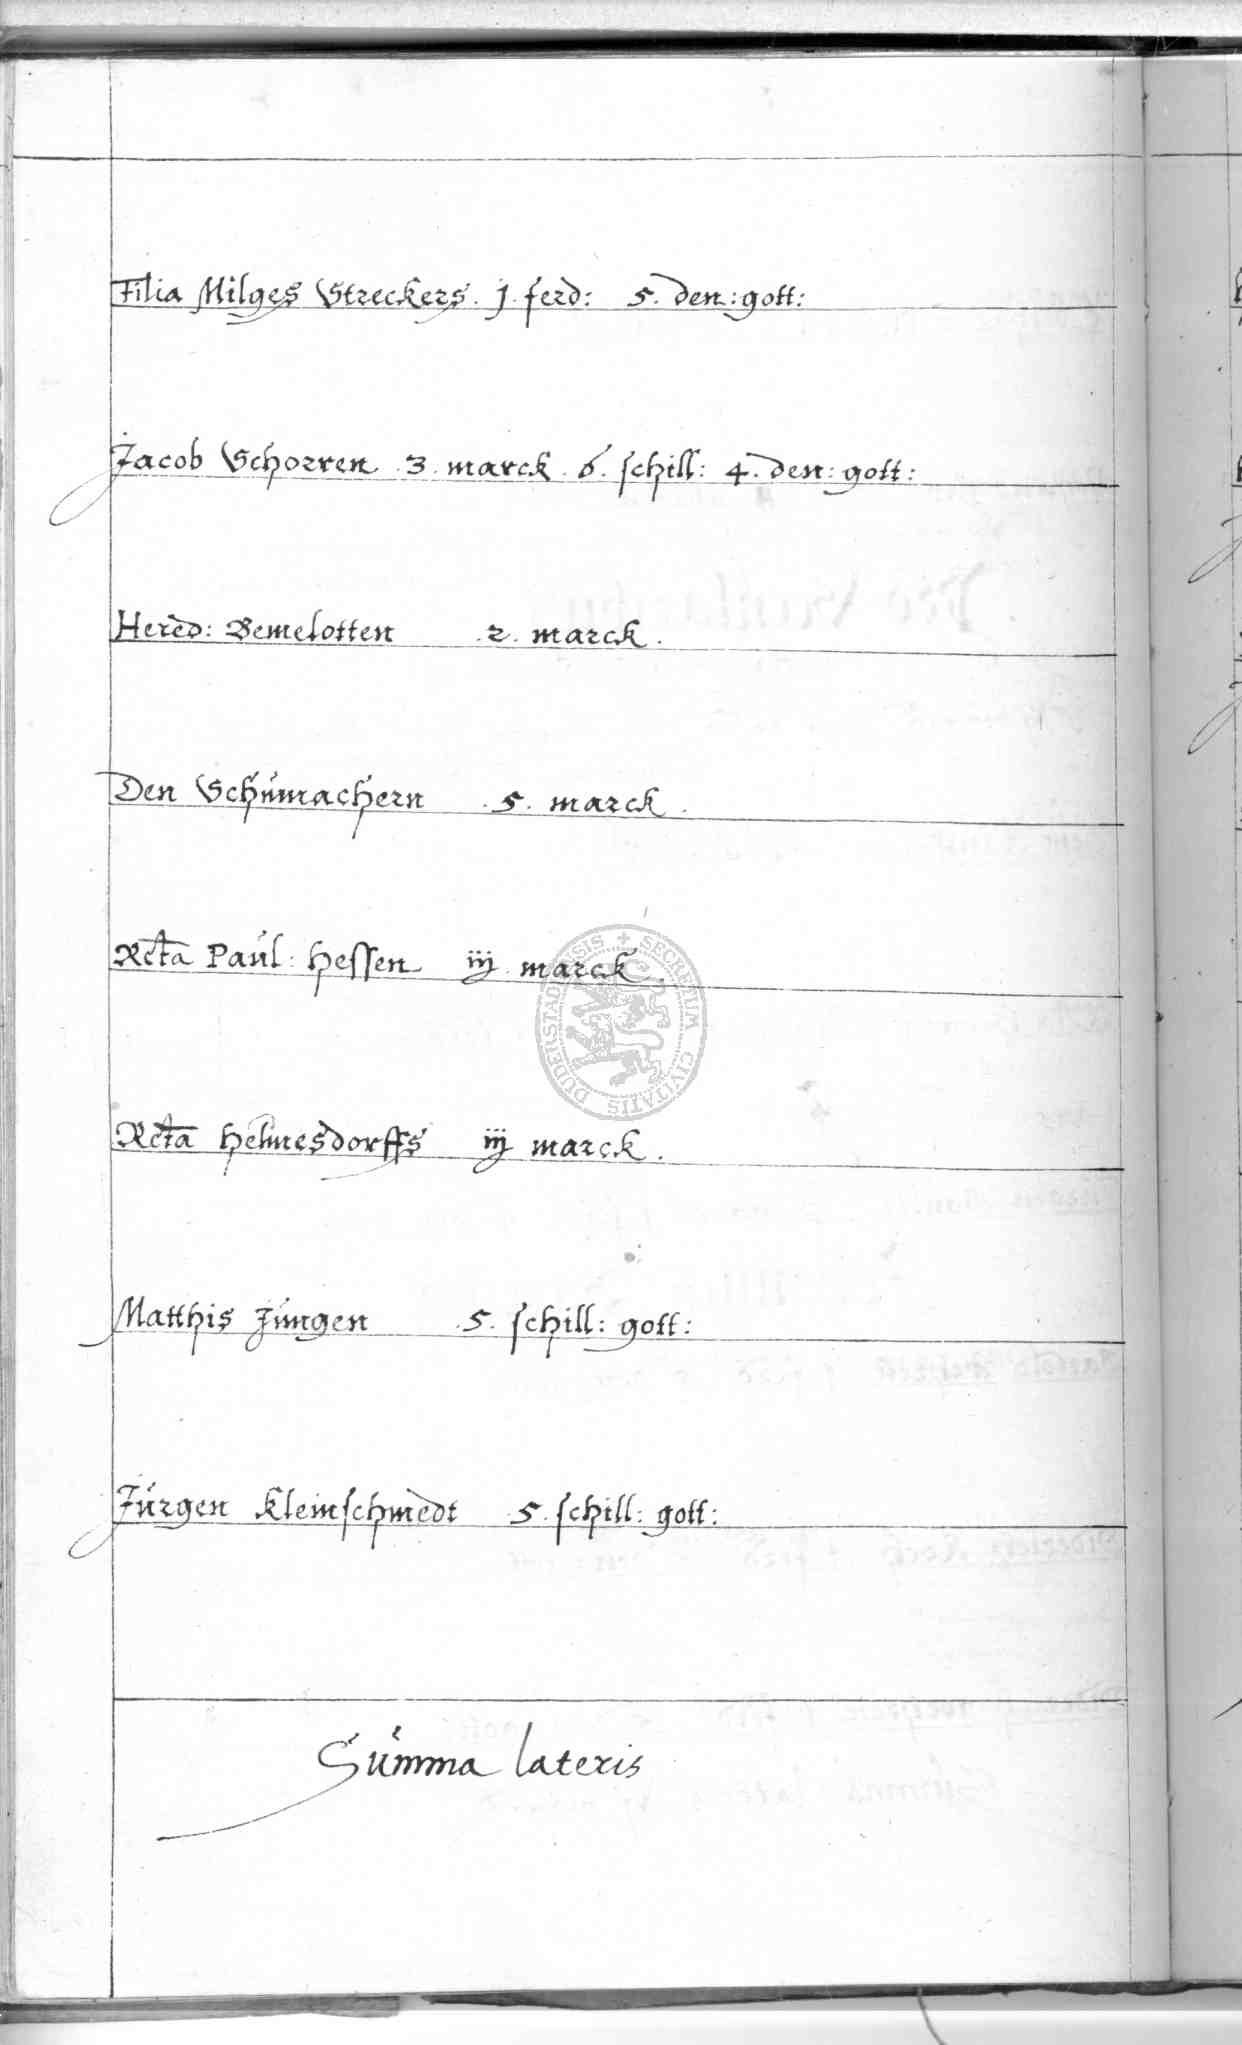 Filia Milges Streckers. j. ferd: 5. den: gott:
Jacob Schorren .3. marck .6. schill: 4. den: gott:
Hered: Bemelotten .2. marck.
Den Schümachern .5. marck.
Rcta Paul: Hessen iij marck.
Rcta Helmesdorffs iij marck.
Matthis Jungen .5. schill: gott:
Jürgen Kleinschmedt 5. schill: gott:
Summa lateris
SECRETUM CIVITATIS DUDERSTADENSIS